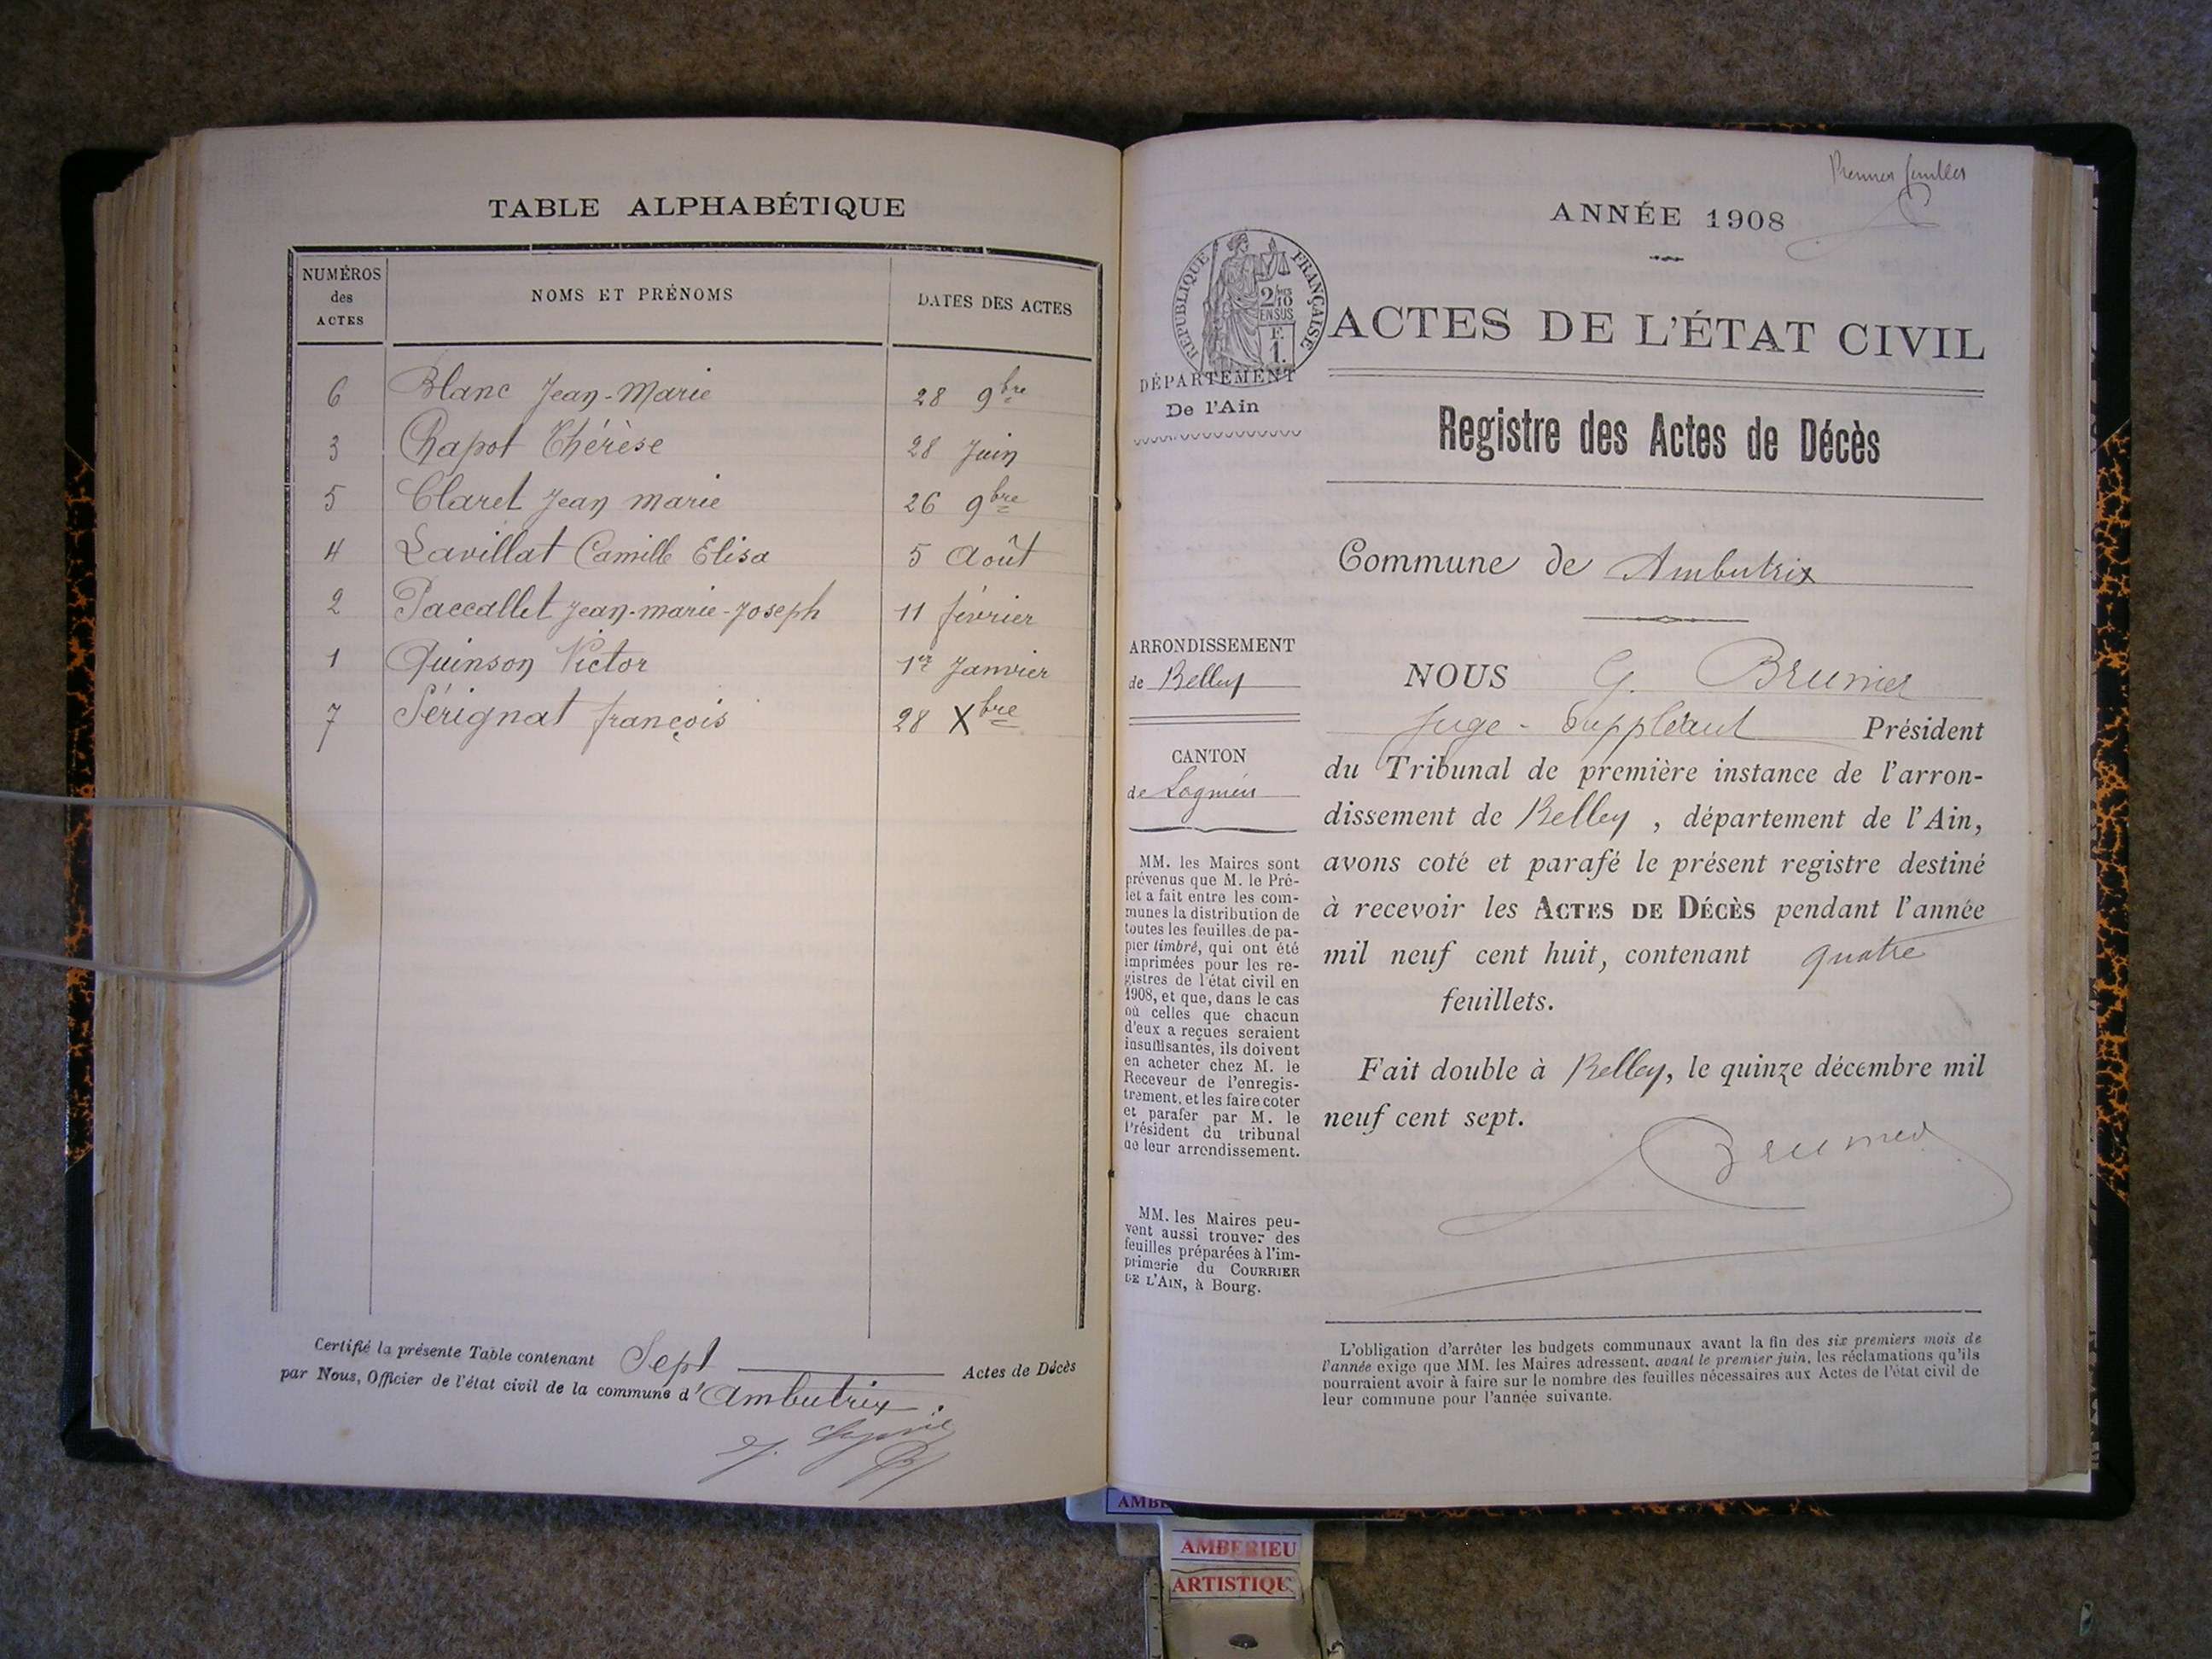 TABLE ALPHABÉTIQUE
NUMÉROS des ACTES
NOMS ET PRÉNOMS
DATES DES ACTES
6 Blanc Jean-Marie 28 9bre
3 Chapot Thérèse 28 Juin
5 Claret Jean marie 26 9bre
4 Lavillat Camille Elisa 5 Août
2 Paccallet Jean-marie-Joseph 11 février
1 Quinson Victor 1er Janvier
7 Sérignat françois 28 Xbre
Certifié la présente Table contenant Sept Actes de Décès
par Nous, Officier de l'état civil de la commune d'Ambutrix.
Premier feuillet
ANNÉE 1908
RÉPUBLIQUE FRANÇAISE
2/10
EN SUS
F.
1.
ACTES DE L'ÉTAT CIVIL
DÉPARTEMENT
De l'Ain
Registre des Actes de Décès
Commune de Ambutrix
ARRONDISSEMENT
de Belley
CANTON
de Lagnieu
MM. les Maires sont
prévenus que M. le Pré-
fet a fait entre les com-
munes la distribution de
toutes les feuilles de pa-
pier timbré, qui ont été
imprimées pour les re-
gistres de l'état civil en
1908, et que, dans le cas
où celles que chacun
d'eux a reçues seraient
insuffisantes, ils doivent
en acheter chez M. le
Receveur de l'enregis-
trement, et les faire coter
et parafer par M. le
Président du tribunal
de leur arrondissement.
MM. les Maires peu-
vent aussi trouver des
feuilles préparées à l'im-
primerie du COURRIER
DE L'AIN, à Bourg.
NOUS G. Brunier
Juge-Suppléant Président
du Tribunal de première instance de l'arron-
dissement de Belley, département de l'Ain,
avons coté et parafé le présent registre destiné
à recevoir les ACTES DE DÉCÈS pendant l'année
mil neuf cent huit, contenant quatre
feuillets.
Fait double à Belley, le quinze décembre mil
neuf cent sept.
Brunier
L'obligation d'arrêter les budgets communaux avant la fin des six premiers mois de
l'année exige que MM. les Maires adressent, avant le premier juin, les réclamations qu'ils
pourraient avoir à faire sur le nombre des feuilles nécessaires aux Actes de l'état civil de
leur commune pour l'année suivante.
AMBE
AMBERIEU
ARTISTIQU